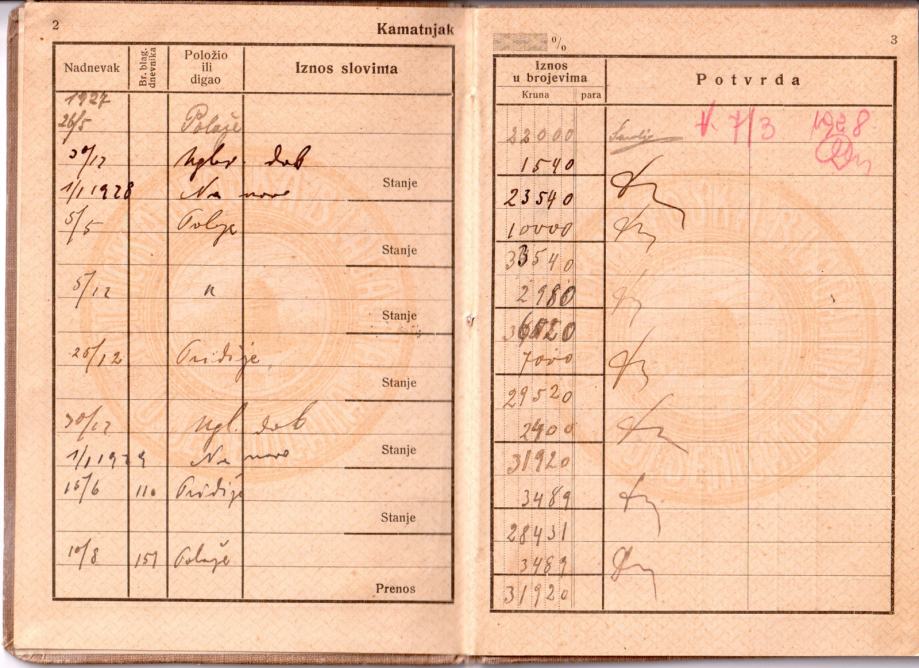 2
Kamatnjak
Nadnevak
Br. blag. dnevnika
Položio
ili
digao
Iznos slovima
1927
26/5 Polaže
30/12 Ugl. dob
Stanje
1/1 1928 Na novo
5/5 Polaže
Stanje
5/12 "
Stanje
28/12 Pridiže
Stanje
30/12 Ugl. dob
1/1 1929 Na novo
Stanje
15/6 110 Pridiže
Stanje
10/8 151 Polaže
Prenos
%
3
Iznos
u brojevima
Potvrda
Kruna para
22000
V. 7/3 1928
1540
23540
10000
33540
2980
36520
7000
29520
2400
31920
3489
28431
3489
31920